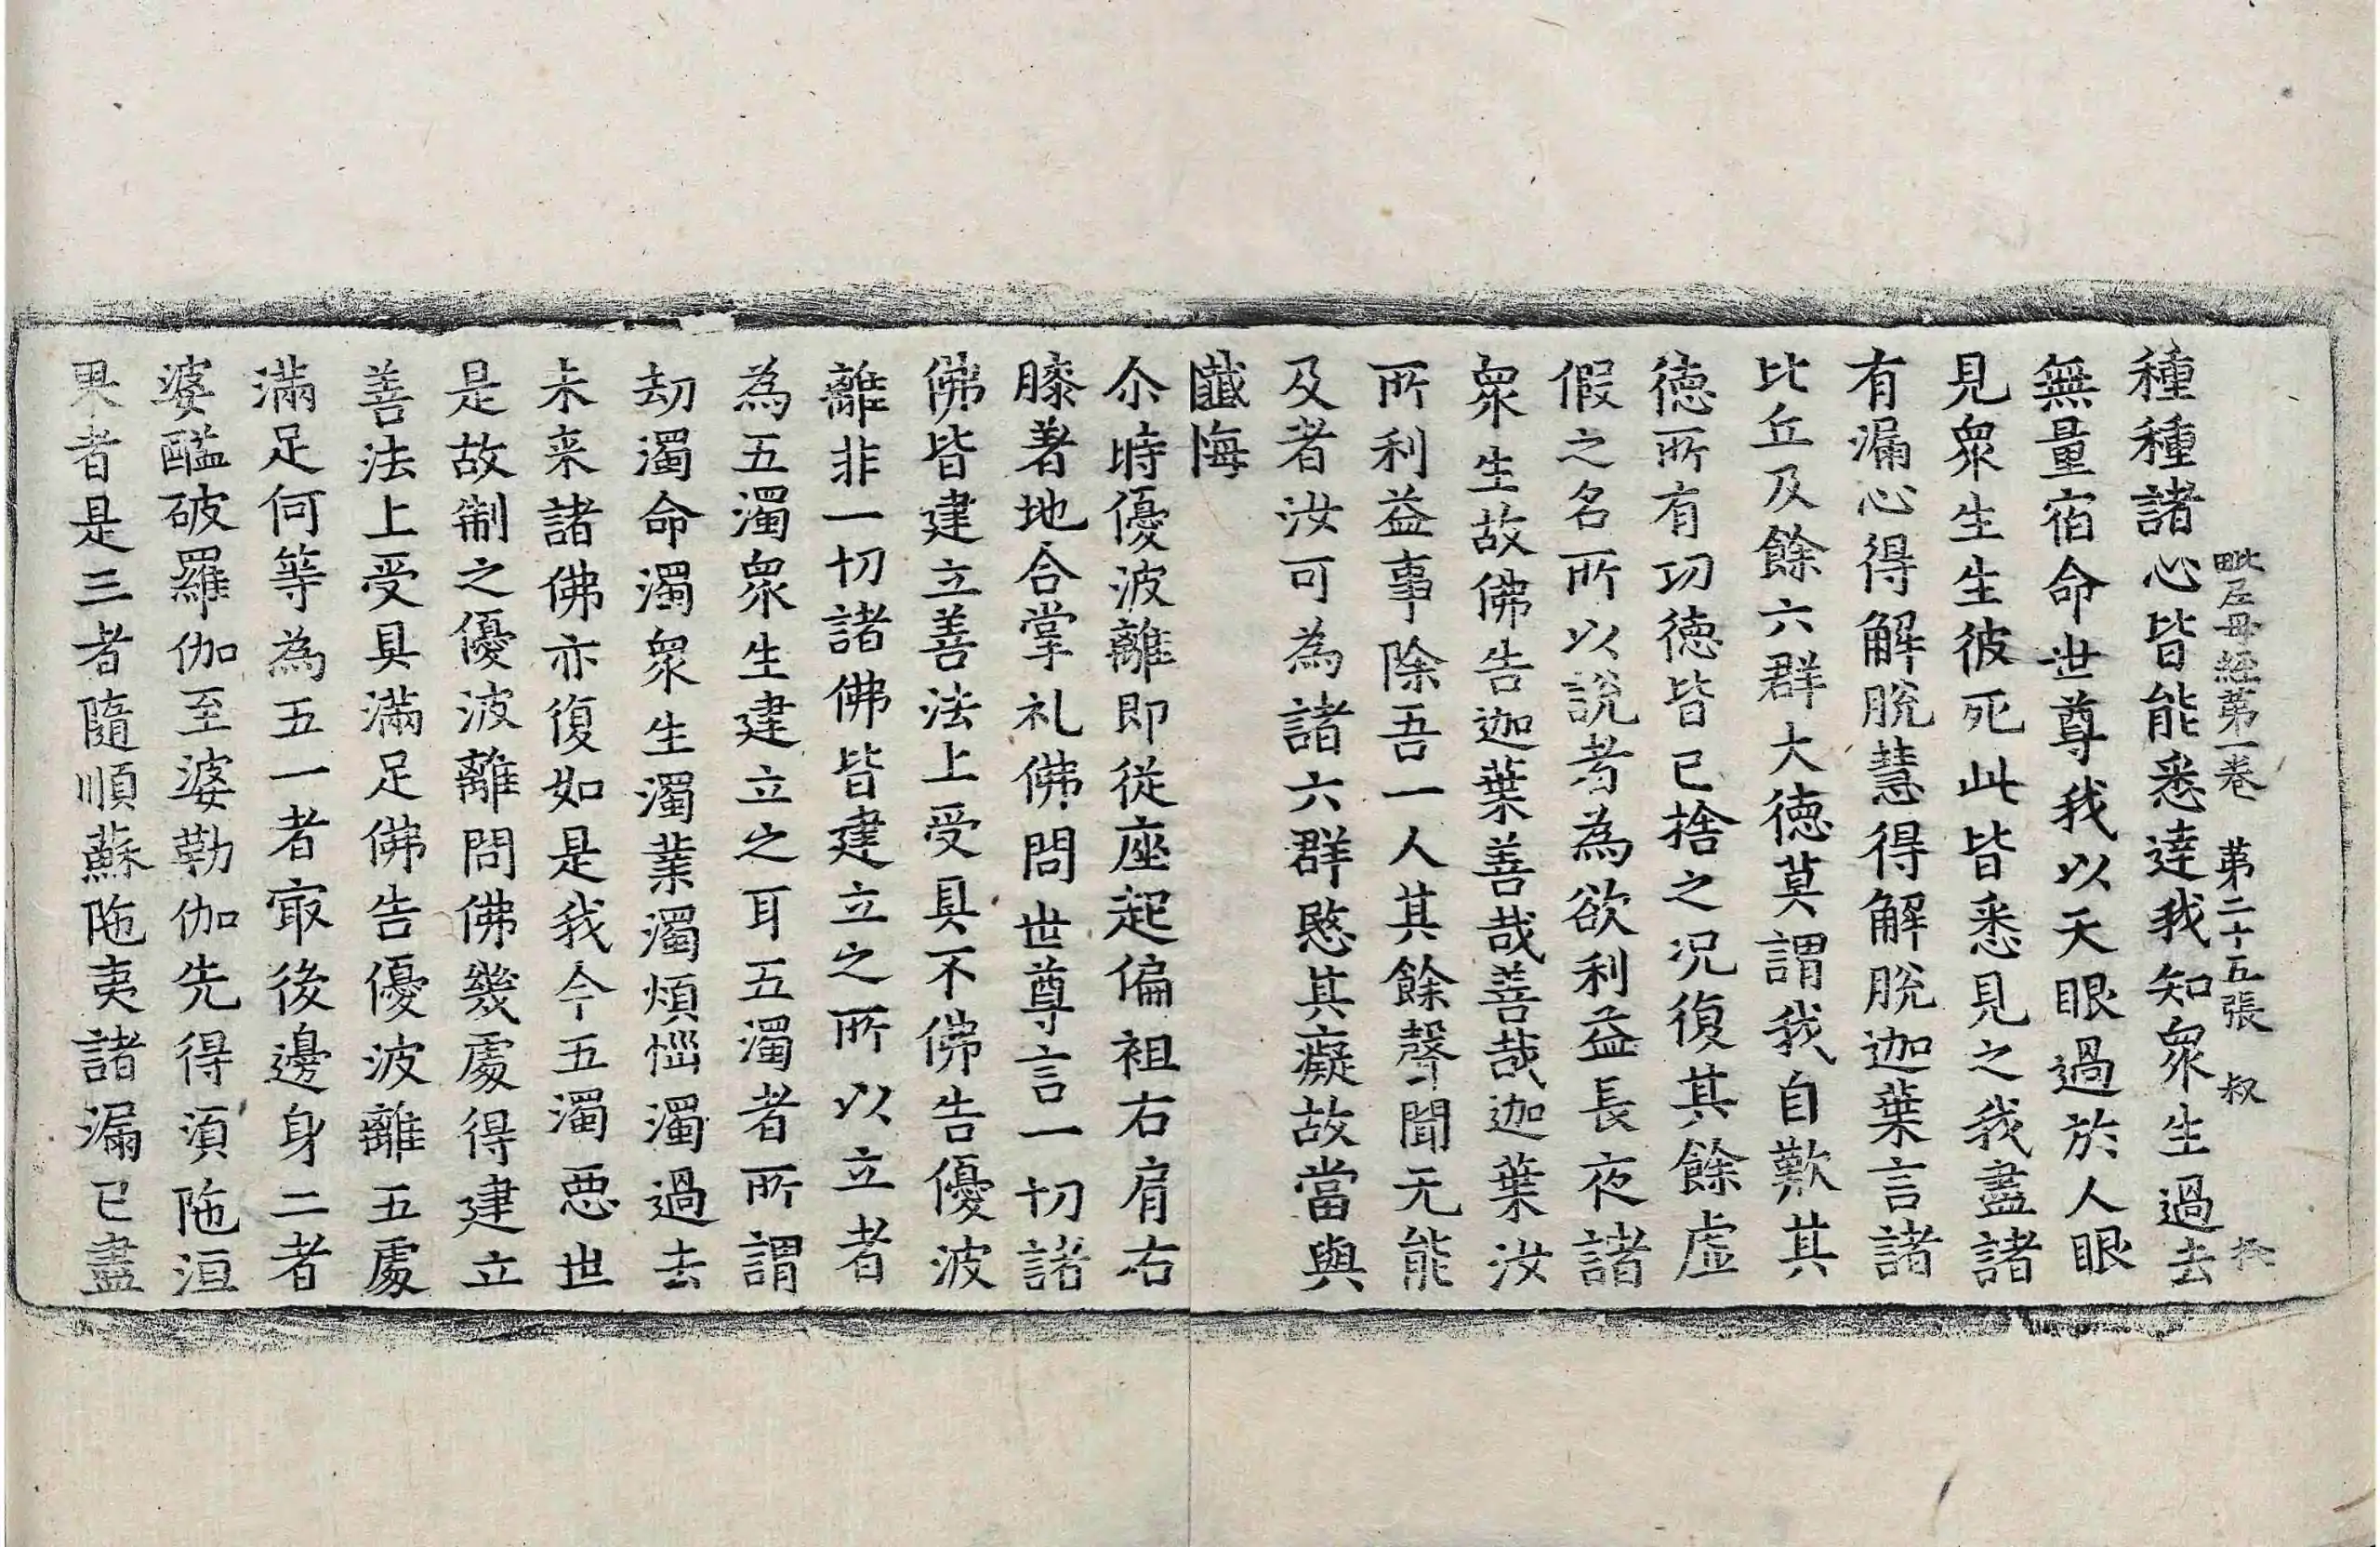 毗尼母經第一卷　第二十五張　叔
種種諸心皆能悉達我知衆生過去
無量宿命世尊我以天眼過於人眼
見衆生生彼死此皆悉見之我盡諸
有漏心得解脫慧得解脫迦葉言諸
比丘及餘六群大德莫謂我自歎其
德所有功德皆已捨之况復其餘虛
假之名所以說者為欲利益長夜諸
衆生故佛告迦葉善哉善哉迦葉汝
所利益事除吾一人其餘聲聞无能
及者汝可為諸六群愍其癡故當與
懺悔
尒時優波離即從座起偏袒右肩右
膝著地合掌礼佛問世尊言一切諸
佛皆建立善法上受具不佛告優波
離非一切諸佛皆建立之所以立者
為五濁衆生建立之耳五濁者所謂
劫濁命濁衆生濁業濁煩惱濁過去
未来諸佛亦復如是我今五濁悪世
是故制之優波離問佛幾處得建立
善法上受具滿足佛告優波離五處
滿足何等為五一者㝡後邊身二者
婆醯破羅伽至婆勒伽先得湏陁洹
果者是三者隨順蘇陁夷諸漏已盡